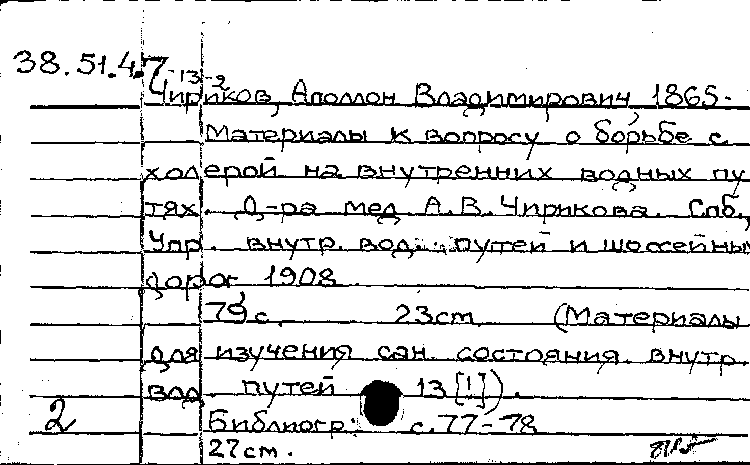 38.51.4.7
-13-2
Чириков, Аполлон Владимирович, 1865-
Материалы к вопросу о борьбе с
холерой на внутренних водных пу
тях. Д-ра мед. А.В. Чирикова. Спб.,
Упр. внутр. вод. путей и шоссейны
дорог, 1908.
79 с. 23cm. (Материалы
для изучения сан. состояния внутр.
вод. путей 13 [!]).
2 Библиогр: с. 77-78
27см.